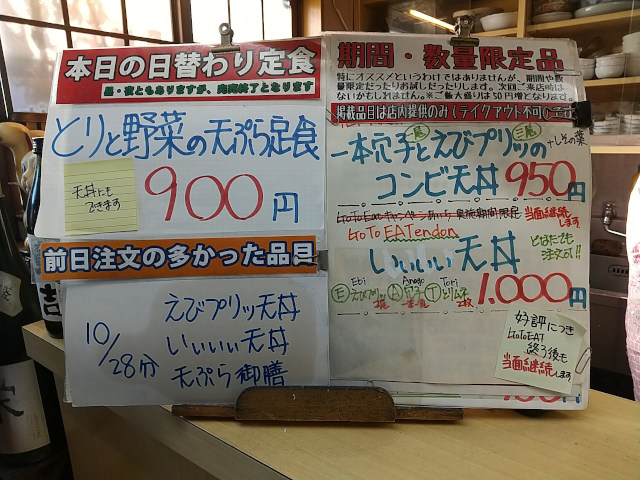 本日の日替わり定食
昼・夜ともありますが、売切終了となります
とりと野菜の天ぷら定食
天丼にも
できます
900円
前日注文の多かった品目
10/28分
えびプリッ天丼
いいいい天丼
天ぷら御膳
期間・数量限定品
特にオススメというわけではありませんが、期間や数
量限定だったりお試しだったりします。次回ご来店時は
ないかもしれません。※ご飯大盛りは50円増となります。
掲載品目は店内提供のみ(テイクアウト不可)
一本穴子とえびプリッの
+しその葉
コンビ天丼 950円
GoToEatキャンペーン
実施期間限定 当面継続します
GoTo EATendon
いいいい天丼
どなたでも
注文可!!
Ebi Anago Tori
E えびプリッ A アナゴ T とりムネ
1,000円
好評につき
GoToEAT
終了後も
当面継続します